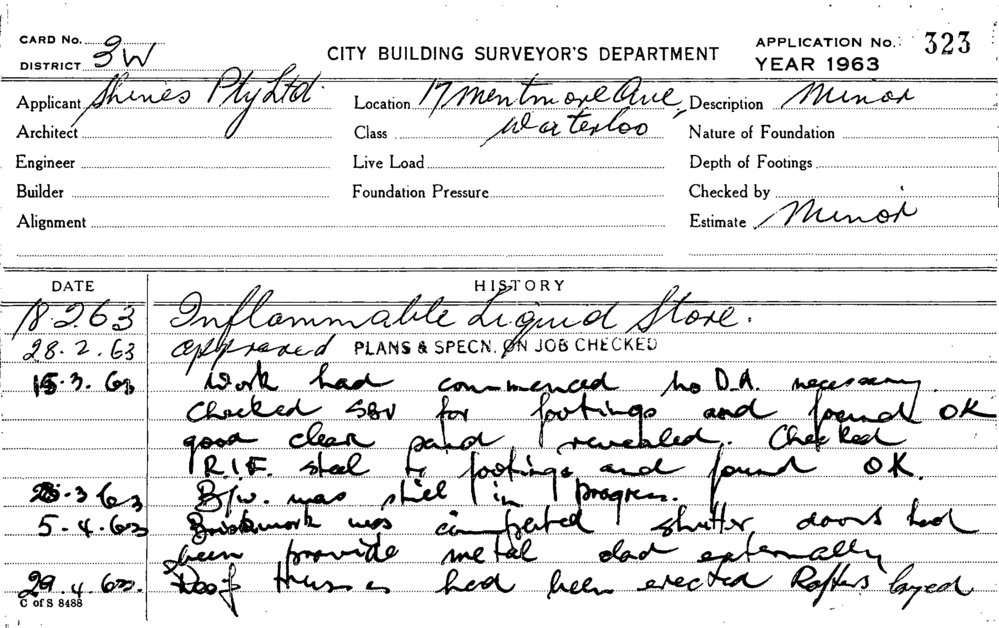 CARD No. 3W
DISTRICT
CITY BUILDING SURVEYOR'S DEPARTMENT
APPLICATION No. 323
YEAR 1963
Applicant Shines Pty Ltd. Location 17 Mentmore Ave, Description Minor
Architect Class Waterloo Nature of Foundation
Engineer Live Load Depth of Footings
Builder Foundation Pressure Checked by
Alignment Estimate Minor
DATE HISTORY
18 2 63 Inflammable Liquid Store.
28. 2. 63 approved PLANS & SPECN. ON JOB CHECKED
15. 3. 63 Work had commenced no D.A. necessary.
Checked for footings and found OK
good clean sand revealed. Checked
steel to footings and found OK.
3 63 B/w. was still in progress.
5. 4. 63 Brickwork was completed shutter doors had
been provide metal clad externally
29. 4. 63. Roof trusses had been erected Rafters layed
C of S 8488